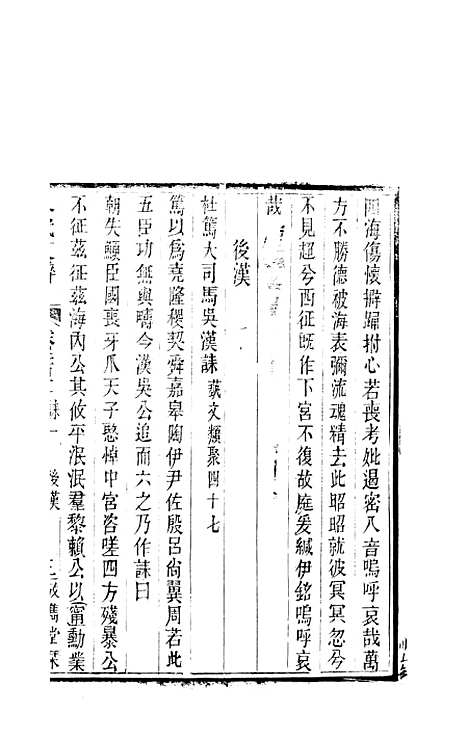 四海傷懷擗踴拊心若喪考妣遏密八音嗚呼哀哉萬
方不勝德被海表彌流魂精去此昭昭就彼冥冥忽兮
不見超兮西征既作下宮不復故庭爰緘伊銘嗚呼哀
哉
後漢
杜篤大司馬吳漢誄藝文類聚四十七
篤以爲堯隆稷契舜嘉皋陶伊尹佐殷呂尙翼周若此
五臣功無與疇今漢吳公追而六之乃作誄曰
朝失鯁臣國喪牙爪天子愍悼中宮咨嗟四方殘暴公
不征茲征茲海內公其攸平泯泯羣黎賴公以甯勳業
後漢